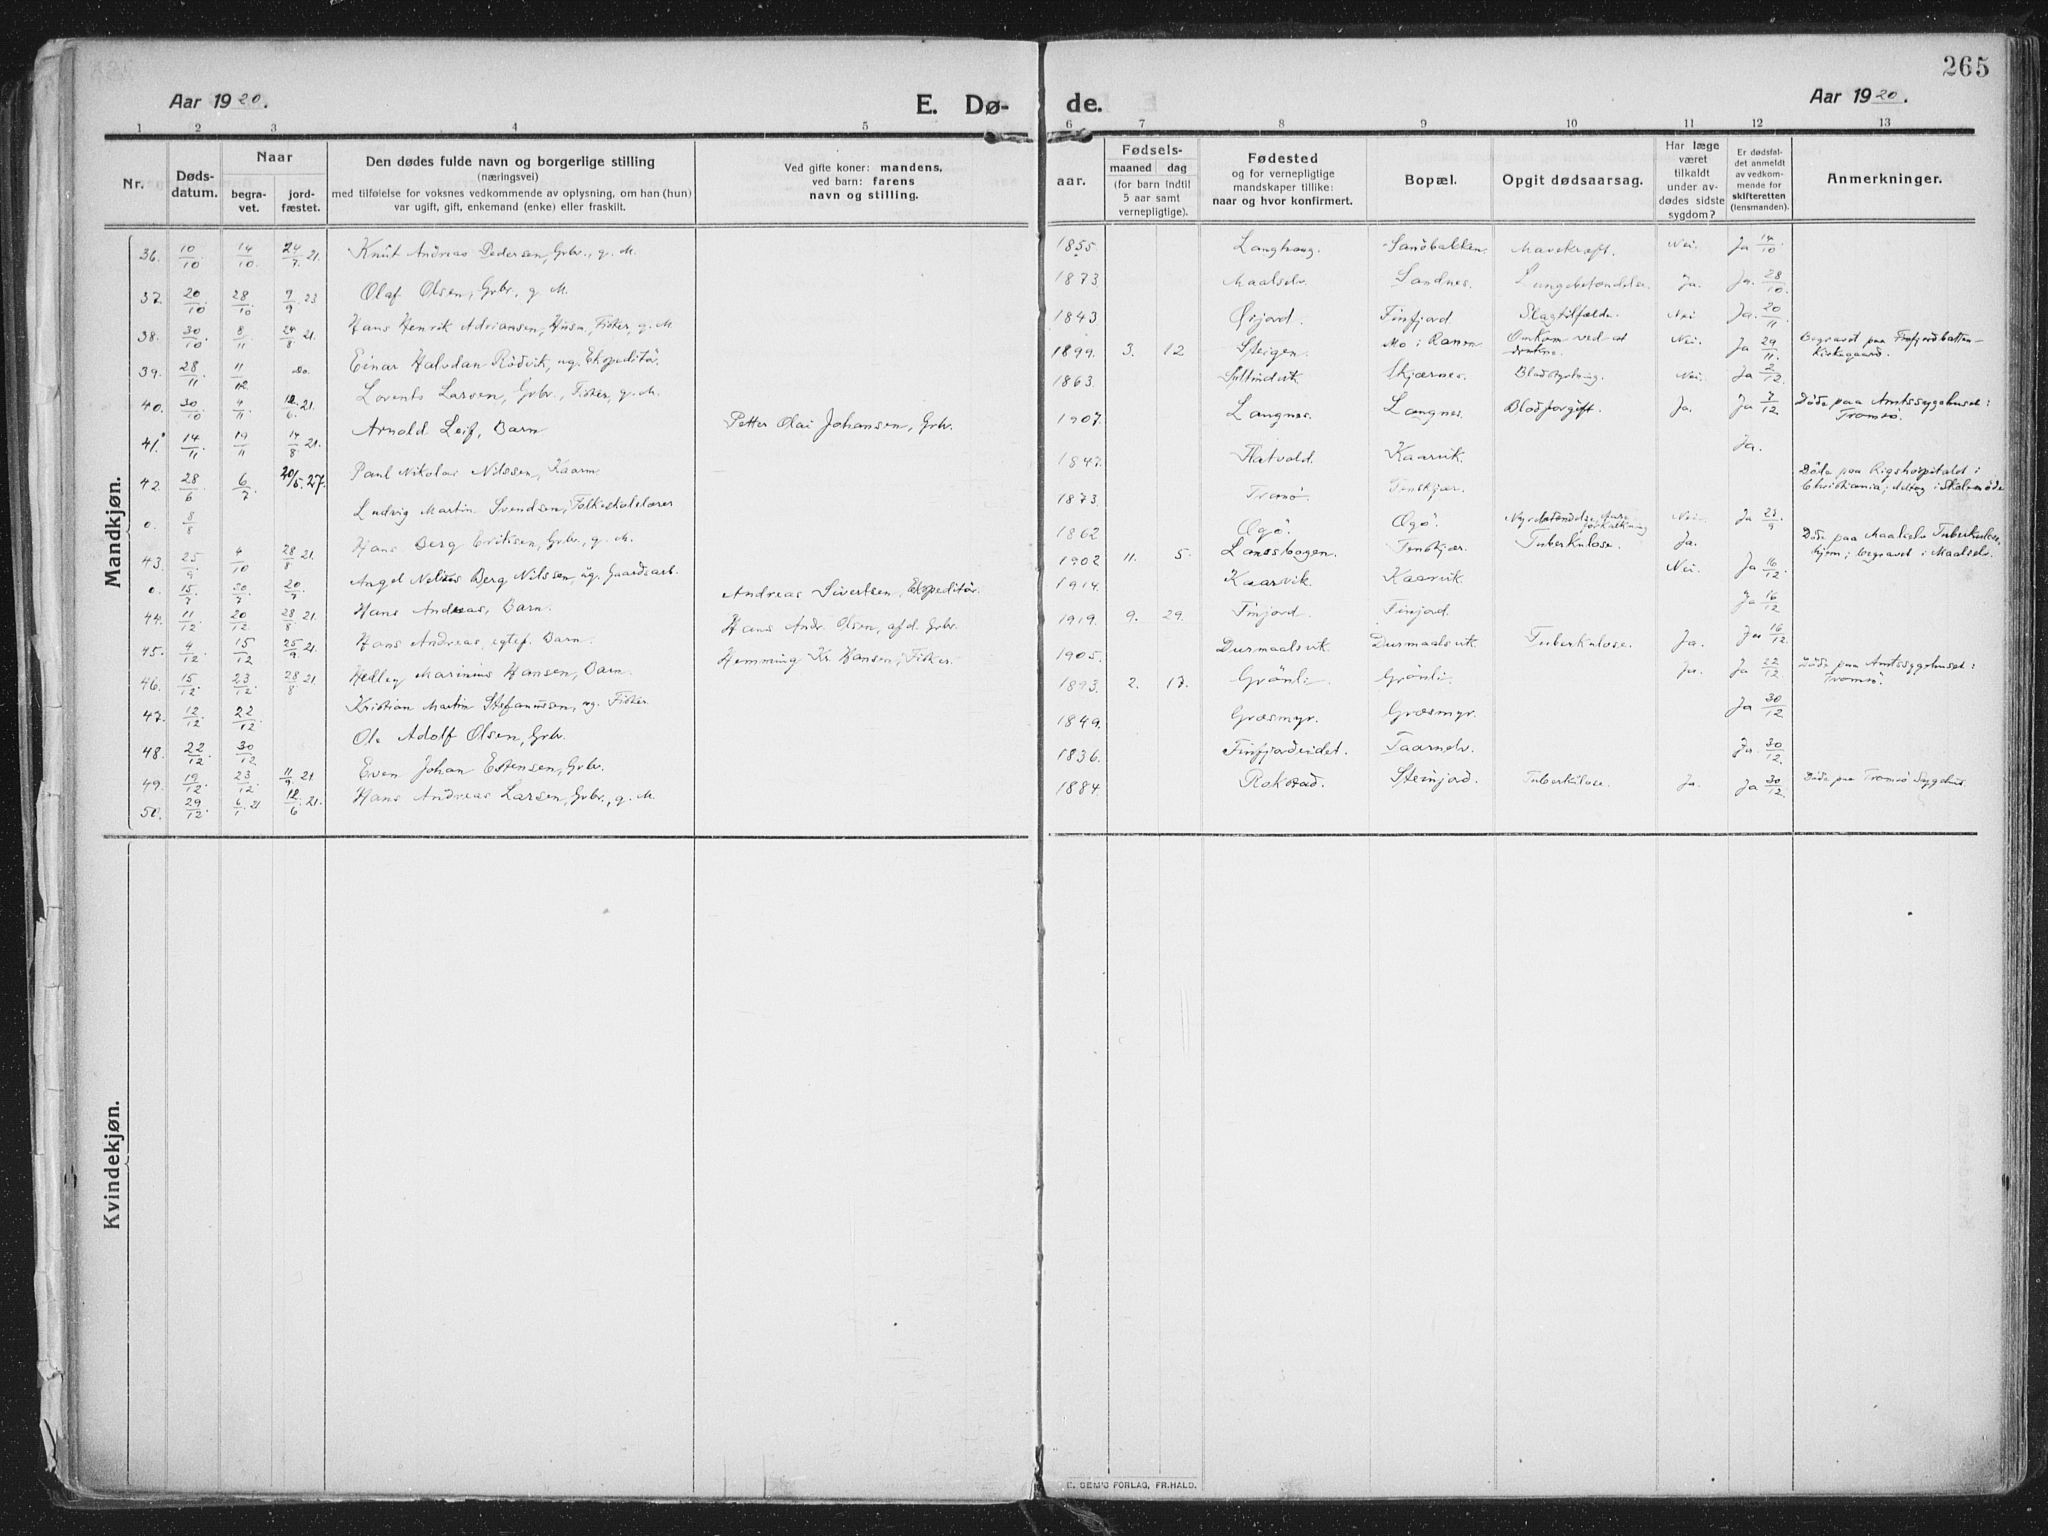 265
Aar 1920.
E. Dø-
de.
Aar 1920.
1 2 3 4 5 6 7 8 9 10 11 12 13
Nr.
Døds-
datum.
Naar
begra-
vet.
jord-
fæstet.
Den dødes fulde navn og borgerlige stilling
(næringsvei)
med tilføielse for voksnes vedkommende av oplysning, om han (hun)
var ugift, gift, enkemand (enke) eller fraskilt.
Ved gifte koner: mandens,
ved barn: farens
navn og stilling.
Fødsels-
aar.
maaned dag
(for barn indtil
5 aar samt
vernepligtige).
Fødested
og for vernepligtige
mandskaper tillike:
naar og hvor konfirmert.
Bopæl.
Opgit dødsaarsag.
Har læge
været
tilkaldt
under av-
dødes sidste
sygdom?
Er dødsfal-
det anmeldt
av vedkom-
mende for
skifteretten
(lensmanden).
Anmerkninger.
Mandkjøn.
36. 10/10 14/10. 24/7. 21. Knut Andreas Pedersen, Grbr., g. M. 1855. Sandbakken. Mavekræft. Nei. Ja 14/10
37. 20/10 28/10 9/9. 23 Olaf Olsen, Grbr., g. M. 1873 Maalselv. Sandnes. Lungebetændelse. Ja. Ja. 28/10.
38. 30/10 8/11 24/8. 21. Hans Henrik Adriansen, Husm., Fisker, g. M. 1843 Finfjord. Slagtilfælde. Nei Ja. 20/11
39. 28/11. 11/12. Do. Einar Halvdan Rödvik, ug. Ekspeditör. 1899. 3. 12 Steigen. Mo i Ranen Omkom ved at drukne. Nei. Ja 29/11. Begravet paa Finfjordbotten-
Kirkegaard.
40. 30/10 4/11. 12/6. 21. Lorents Larsen, Grbr., Fisker, g. M. 1863. Skjærnes. Nei Ja 2/12.
41. 14/11 19/11 14/8. 21. Arnold Leif, Barn Petter Olai Johansen, Grbr. 1907. Langnes. Langnes. Blodforgift. Ja. Ja 7/12 Døde paa Amtssygehuset i
Tromsö.
42. 28/6 6/7 20/5. 27. Paul Nikolai Nilssen, Kaarm. 1847. Kaarvik. Ja.
0. 8/8 Ludvig Martin Svendsen, Folkeskolelærer 1873. Tromsö. Tenskjær. Döde paa Rigshospitalet i
Christiania; deltog i Skolemöde
43. 25/9 4/10 28/8 21. Hans Berg Eriksen, Grbr., g. M. 1862 Øgö. Øgö. Nei. Ja 25/9
0. 15/7 20/7. 20/7 Angel Berg Nilssen, ug. Gaardsarb. 1902 11. 5. Tenskjær. Tuberkulose. Ja. Döde paa Maalselv Tuberkulose-
hjem; begravet i Maalselv.
44. 11/12 20/12 28/8 21. Hans Andreas, Barn. Andreas Sivertsen, Ekspeditör. 1914. Kaarvik. Kaarvik Nei. Ja 16/12
45. 4/12 15/12 25/9. 21. Hans Andreas, egtef. Barn. Hans Andr. Olsen, afd. Grbr. 1919. 9. 29. Finjord. Finjord. Ja 16/12
46. 15/12 23/12 28/8 21. Marinius Hansen, Barn. Hemming Kr. Hansen, Fisker. 1905. Durmaalsvik. Durmaalsvik Tuberkulose. Ja. Ja 16/12.
47. 12/12 22/12 Kristian Martin Stefanussen, ug. Fisker 1893. 2. 17. Grönli. Grönli. Ja. Ja 22/12 Döde paa Amtssygehuset i
Tromsö.
48. 22/12 30/12 Ole Adolf Olsen, Grbr. 1849. Græsmyr. Græsmyr. Ja 30/12
49. 19/12 23/12 11/9 21. Even Johan Estensen, Grbr. 1836. Finfjordeidet. Taarnelv. Ja. 30/12
50. 29/12. 6/1. 21 12/6. 21. Hans Andreas Larsen, Grbr., g. M. 1884. Rakstad. Steinjord. Tuberkulose. Ja. Ja 30/12. Döde paa Tromsö Sygehus.
Kvindekjøn.
E. SEM'S FORLAG, FR.HALD.